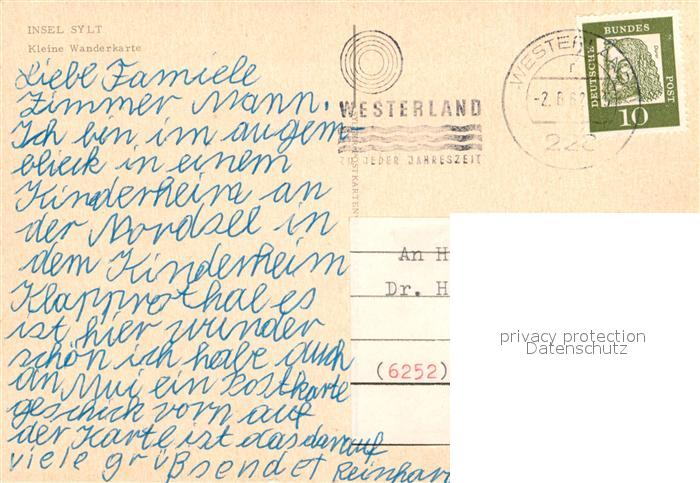 INSEL SYLT
Kleine Wanderkarte
Liebe Familie
Zimmer Mann.
Ich bin im augem-
blick in einem
Kinderheim an
der Nordsee in
dem Kinderheim
Klapprothal es
ist hier wunder
schön ich habe auch
an Mui ein Postkarte
geschick vorn auf
der Karte ist das darauf
viele grüßsendet Reinhar
WESTERLAND
ZU JEDER JAHRESZEIT
WESTERLA
DEUTSCHE BUNDES POST
10
An H
Dr. H
(6252)
privacy protection
Datenschutz